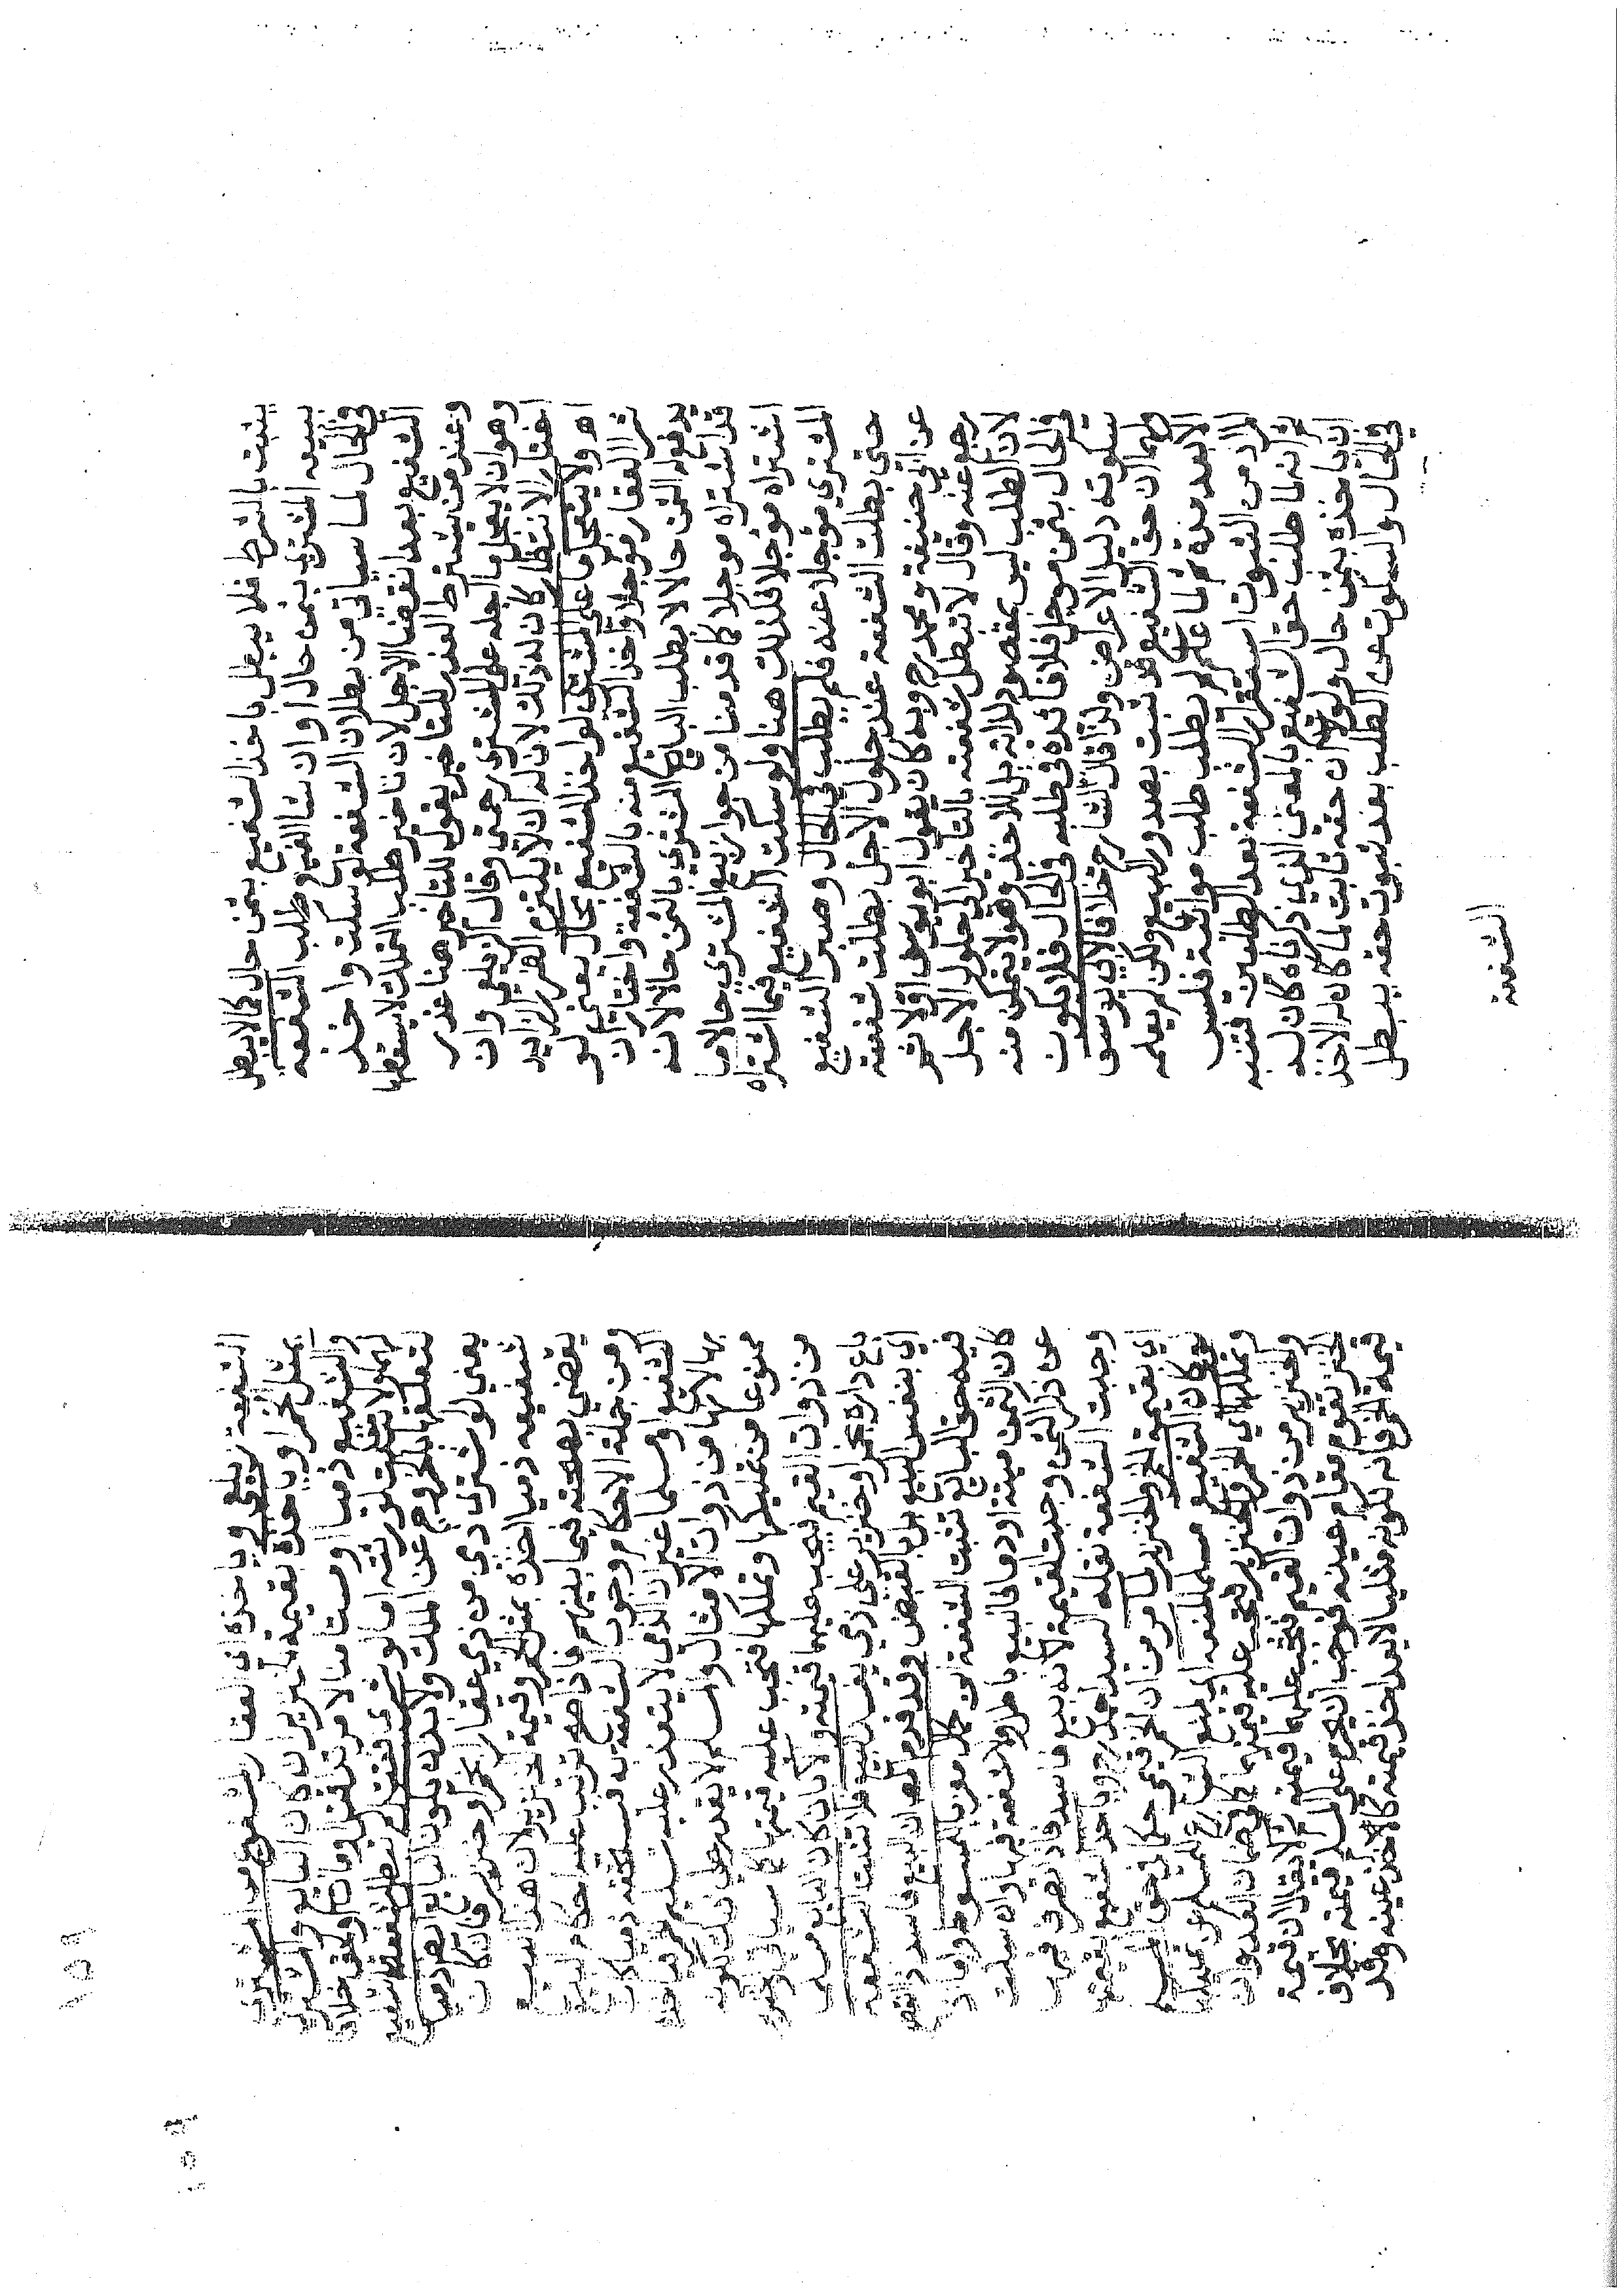 يثبت بالشرط فلا يبطل باخذ الشفيع بثمن حال كما لا يبطل
ببيعه المشتري بثمن حال او ان شاء الشفيع وطلب الشفعة
في الحال لما سياتي من بطلان الشفعة لو سكت واخذ
الشفيع بعد انقضا الاجل لان تاخير طلب التملك لا يسقطها
وعند من يشترط العذر للتاخير يقول للتاخير هنا عذر
وهو ان لا يعجل ما اجله على المشتري رحمتي وقال الزيلعي وان
اختار الانتظار كان له ذلك لان له ان لا يلتزم الضرر الزايد
اهـ ولا يتعجل ما على المشتري لو اخذ الشفيع بحال يعني لو
شرا العقار مؤجلا واخذ الشفيع منه بالشفعة واختار ان
يدفع له الثمن حالا لا يطلب البايع المشتري بالثمن حالا لانه
قد اشتراه موجلا كما قدمنا من جواز بيع المشتري حالا ما
اشتراه مؤجلا فكذلك هنا ولو سكت الشفيع فيما اشتراه
المشتري مؤجلا عنه فلم يطلب في الحال وصبر الشفيع
حتى يطلب الشفعة عند حلول الاجل بطلت شفعته
عن ابي حنيفة ومحمد رح وبه كان يقول ابو يوسف اولا ثم
رجع عنه وقال لا تبطل شفعته بالتاخير الى حلول الاجل
لان الطلب ليس بمقصود لذاته بل للاخذ وهو لا يتمكن منه
في الحال بثمن مؤجل فلا فائدة في طلبه في الحال فلا يكون
سكوته دليل الاعراض ولذا قال الشارح خلافا لابي يوسف
ولهما ان حق الشفيع قد ثبت بصدور البيع ولكن لم يعلمه
الا بعد مدة فلما علم لم يطلب طلب مواثبة فليس
المراد من الثبوت استقرار الشفعة بعد الطلبين فتنبه
ثم انه لما طلب حق الشفيع بالمعنى الذي ذكرناه كان له
ان ياخذه بثمن حال ولولا ان حقه ثابت لما كان له الاخذ
في الحال والسكوت عن الطلب بعد ثبوت حقه يبطل
الشفعة
١٥٩
الشفعة زيلعي وياخذه اي العقار المشفوع من اشترى
بمثل الخمر او ياخذه بقيمة الخنزير ان كان البايع والمشتري
والشفيع ذميا او مستامنا لا مرتدا
لهم ولا تنتقل لورثته اما لو شرى فقتل لم تبطل شفعة الشفيع
لتعلقها بالخروج عن الملك ولا بد ان يكون البايع ايضا ذميا
يعني لو اشترى ذمي من ذمي عقارا بخمر او خنزير فان كان
شفيعه ذميا اخذه بمثل الخمر وقيمة الخنزير لان هذا البيع
يقضي بصحته فيما بينهم فاذا صح ترتب عليه احكام البيع
ومن جملة الاحكام وجوب الشفعة به فيستحقه ذميا كان
الشفيع او مسلما غير ان الذمي لا يتعذر عليه تسليم الخمر فياخذ
بها لانها من ذوات الامثال والمسلم لا يقدر على ذلك لكونه
ممنوعا من تمليكها وتملكها فتجب عليه قيمتها كما سياتي والخنزير
من ذوات القيم فيجب عليهما قيمته ولا بان كان البايع مسلم
باع داره بخمر او خنزير على ذمي يفسد البيع فلا تثبت الشفعة
اي بنفس البيع بل بالقبض وقد قدم ان البيع فاسد
فيه حق البايع تثبت الشفعة كما مر بالمبسوط واما ان
كان الثمن ميتة او دما فالبيع باطل ولا شفعة فيها
عن ذكر الثمن وجبت القيمة لانه بيع فاسد فاذا تصرف فيه
وجبت الشفعة نقله السيد احمد رح وياخذ الشفيع بقيمته
اي بقيمة الخمر والخنزير لما مر من ان الخمر قيمي حكما في حق المسلم
لو كان الشفيع مسلما لمنعه اي لمنع الشارع المسلم عن تمليكها
وتملكها اي الخمر والخنزير فتجب عليه قيمتها كما في ضمان العدوان
والخنزير من ذوات القيم فتجب عليهما قيمته لا يقال ان قيمة
الخنزير تقوم مقام عينه فوجب ان يحرم على المسلم قيمته بخلاف
قيمة الخمر فانه لكونه مثليا لا يعد اخذ قيمته كاخذ عينه وقد